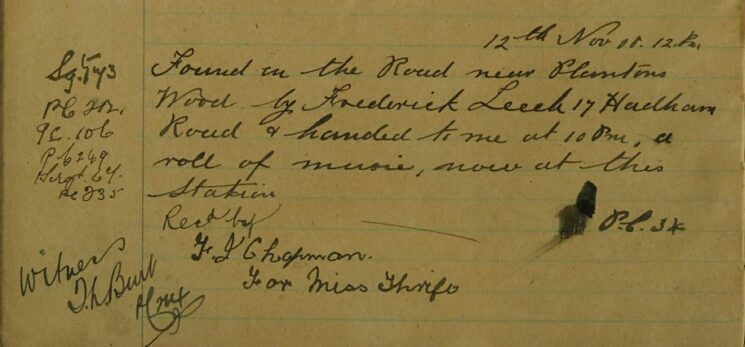 12th Nov 08. 12. Pm.
Found on the Road near Plantons
Wood by Frederick Leech 17 Hadham
Road & handed to me at 10 Pm, a
roll of music, now at this
Station
P.C. 34
Recd by
F. J Chapman.
For Miss Thrift
Sgt 73
PC 212.
PC. 106
Pc 249
Sergt. 64.
Pc 235
Witness